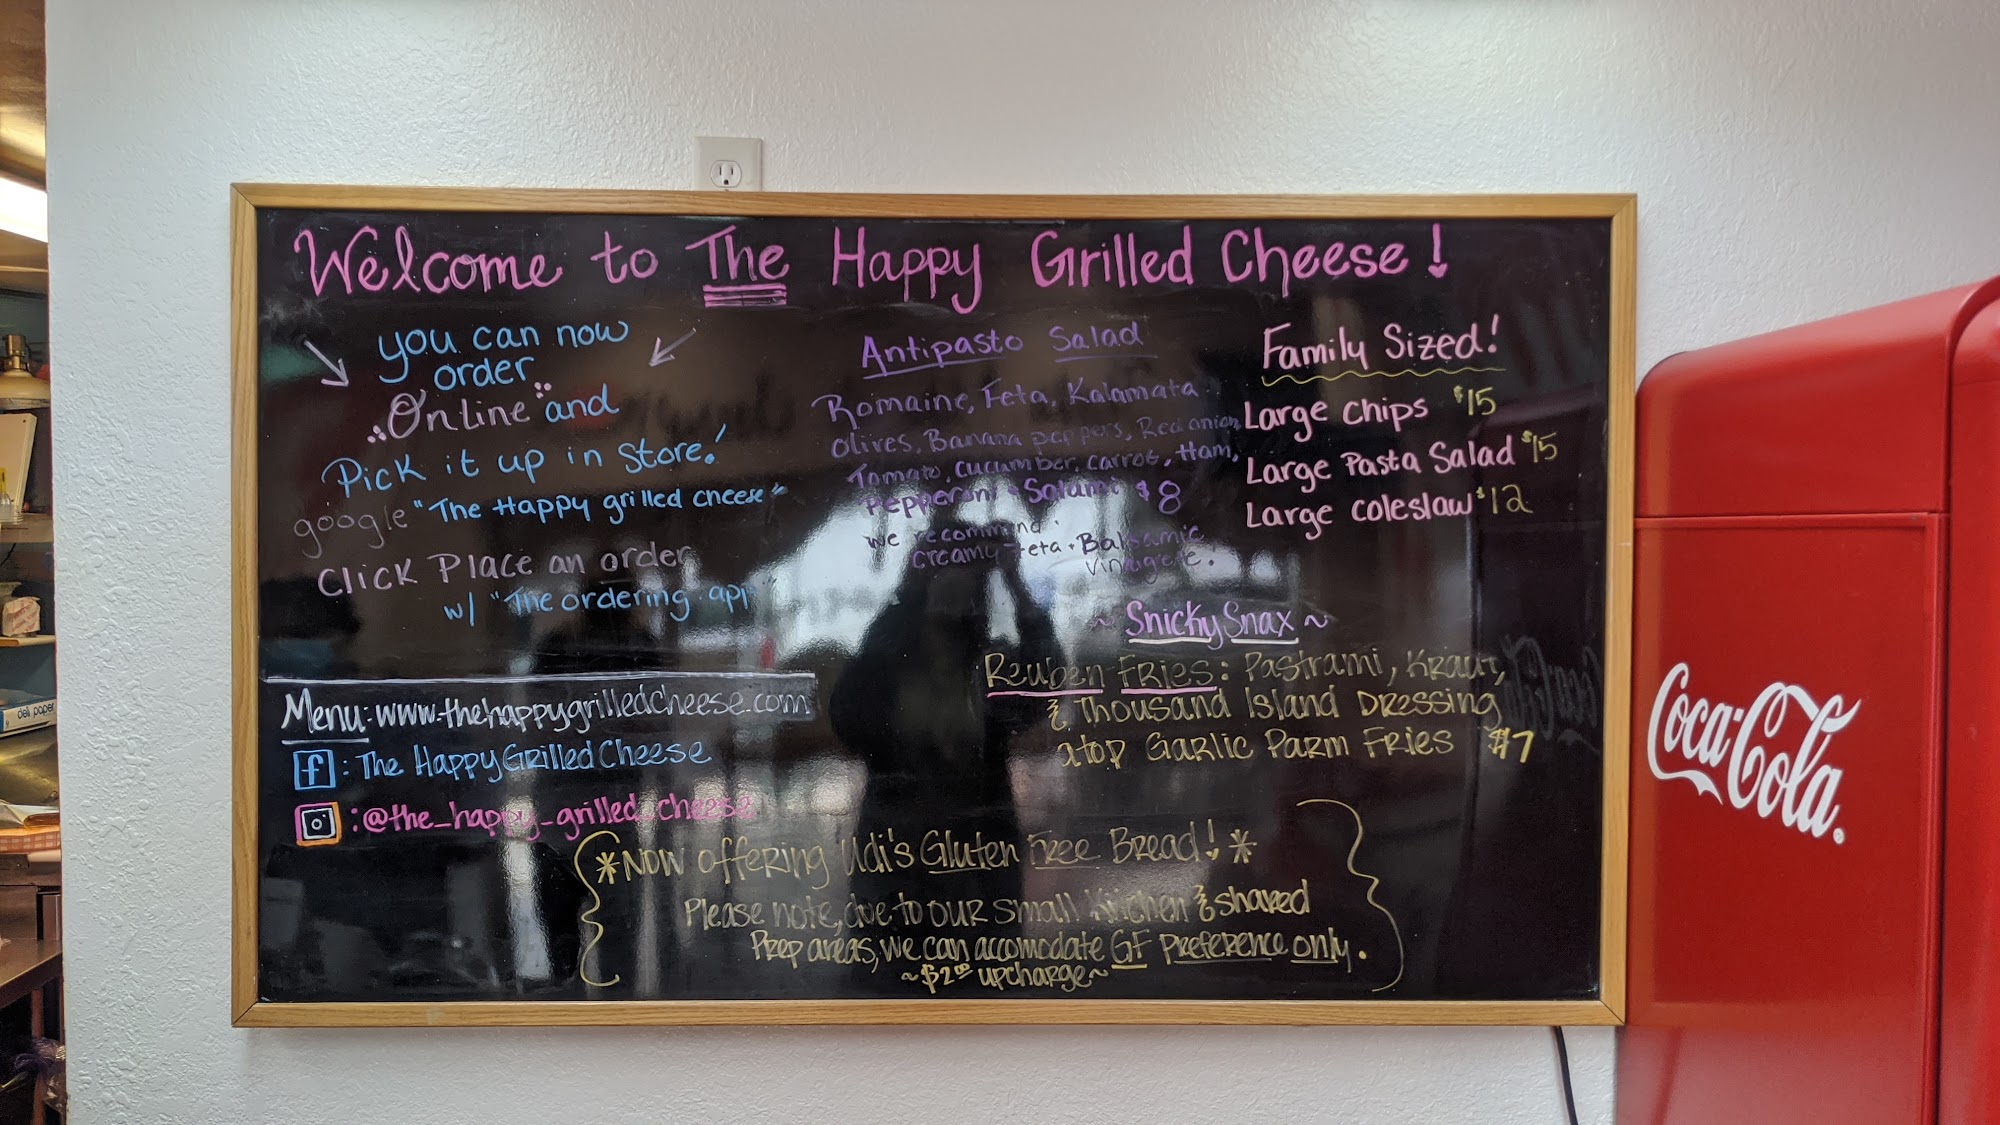 Welcome to The Happy Grilled Cheese!
you can now
order
"Online" and
Pick it up in Store!
google "The Happy grilled cheese"
Click Place an order
w/ "The ordering app"
Menu: www.thehappygrilledcheese.com
f : The Happy Grilled Cheese
: @the_happy_grilled_cheese
Antipasto Salad
Romaine, Feta, Kalamata
Olives, Banana peppers, Red onion,
Tomato, cucumber, carrot, Ham,
Pepperoni + Salami $8
we recommend
creamy feta + Balsamic
vinaigrette!
Family Sized!
Large Chips $15
Large Pasta Salad $15
Large coleslaw $12
~ Snicky Snax ~
Reuben Fries: Pastrami, Kraut,
& Thousand Island Dressing
atop Garlic Parm Fries $7
*Now offering Udi's Gluten Free Bread! *
Please note, due to our small kitchen & shared
Prep areas, we can accomodate GF preference only.
~$2.00 upcharge~
Coca-Cola
deli paper